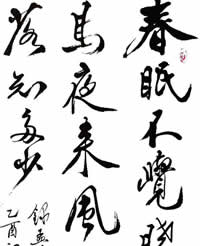 春眠不覺曉
鳥夜来風
落知多少
錄孟
乙酉